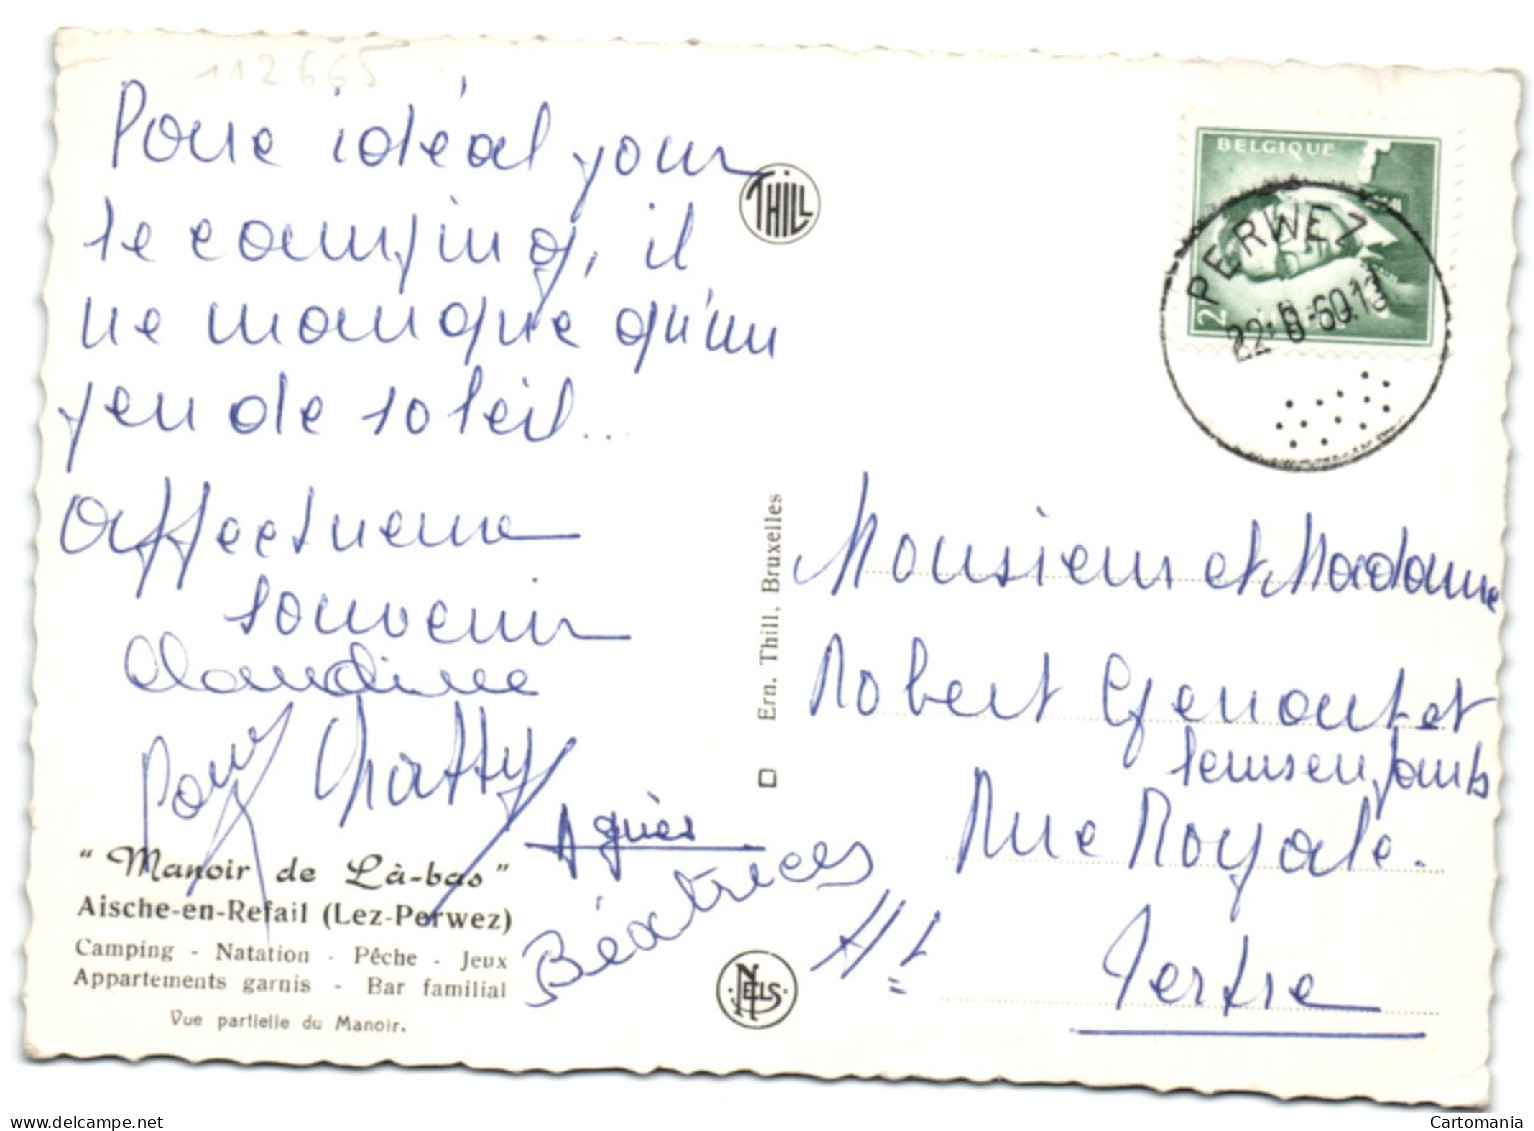 112665
Pour idéal pour
le camping, il
ne manque qu'un
peu de soleil...
Affectueux
souvenir
Claudine
Agnès
Béatrices
"Manoir de Là-bas"
Aische-en-Refail (Lez-Perwez)
Camping - Natation - Pêche - Jeux
Appartements garnis - Bar familial
Vue partielle du Manoir.
THILL
Ern. Thill. Bruxelles
NELS
BELGIQUE
2
PERWEZ
Monsieur et Madame
Robert et
leurs enfants
Rue Royale.
Ht
Tertre
delcampe.net
Cartomania